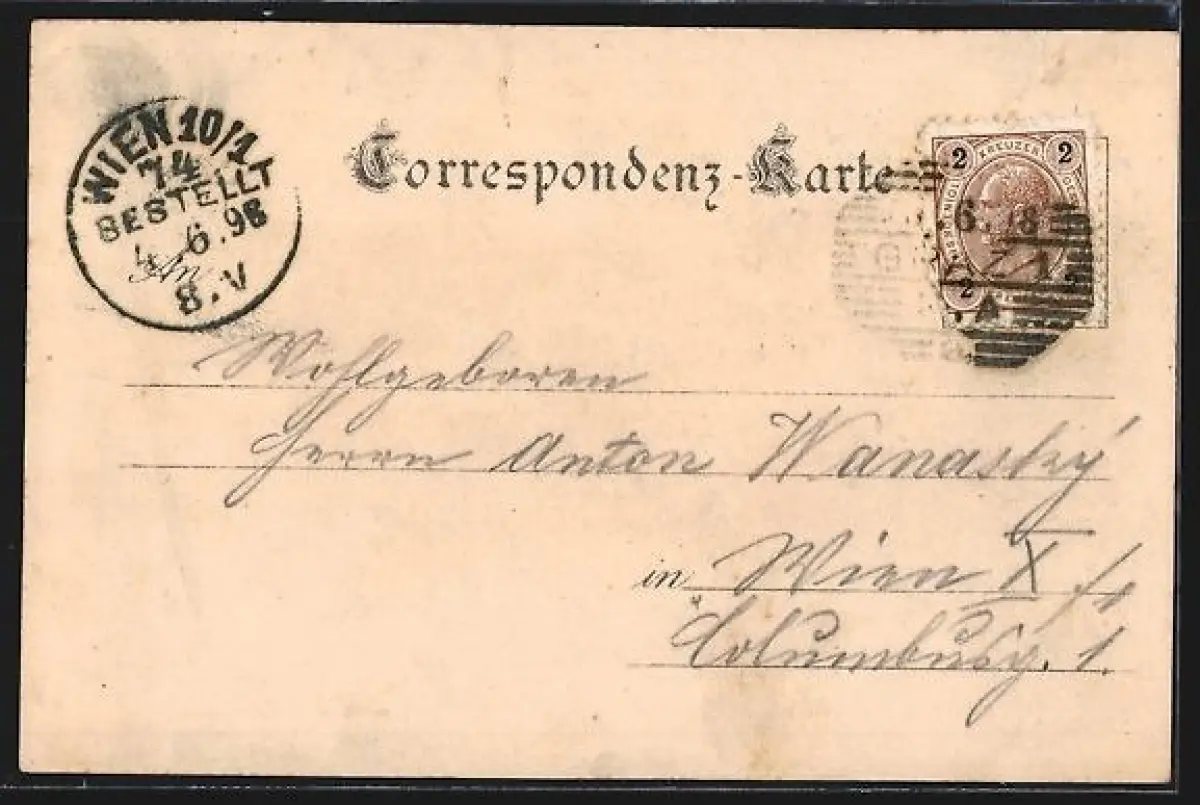 WIEN 10/1
74
BESTELLT
6.98
8.V
Correspondenz-Karte
2 KREUZER 2
2
6 98
Wohlgeboren
Herrn Anton Wanasky
in Wien X/1
Columbusg. 1.